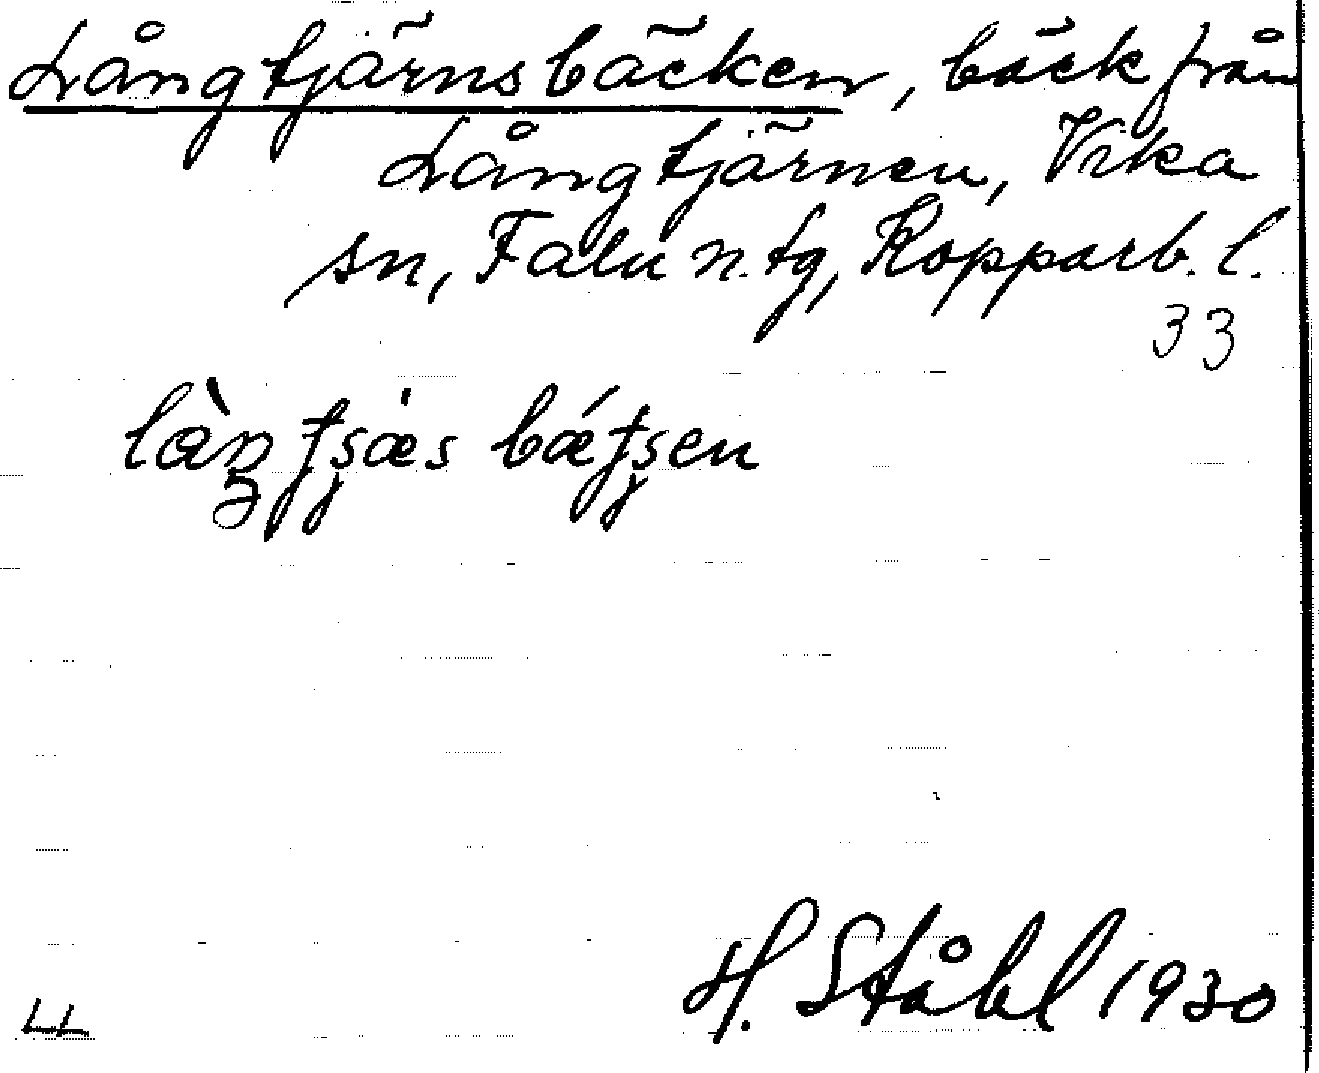 Långtjärnsbäcken, bäck från
Långtjärnen, Vika
sn, Falu n. tg, Kopparb. l.
33
H. Ståhl 1930